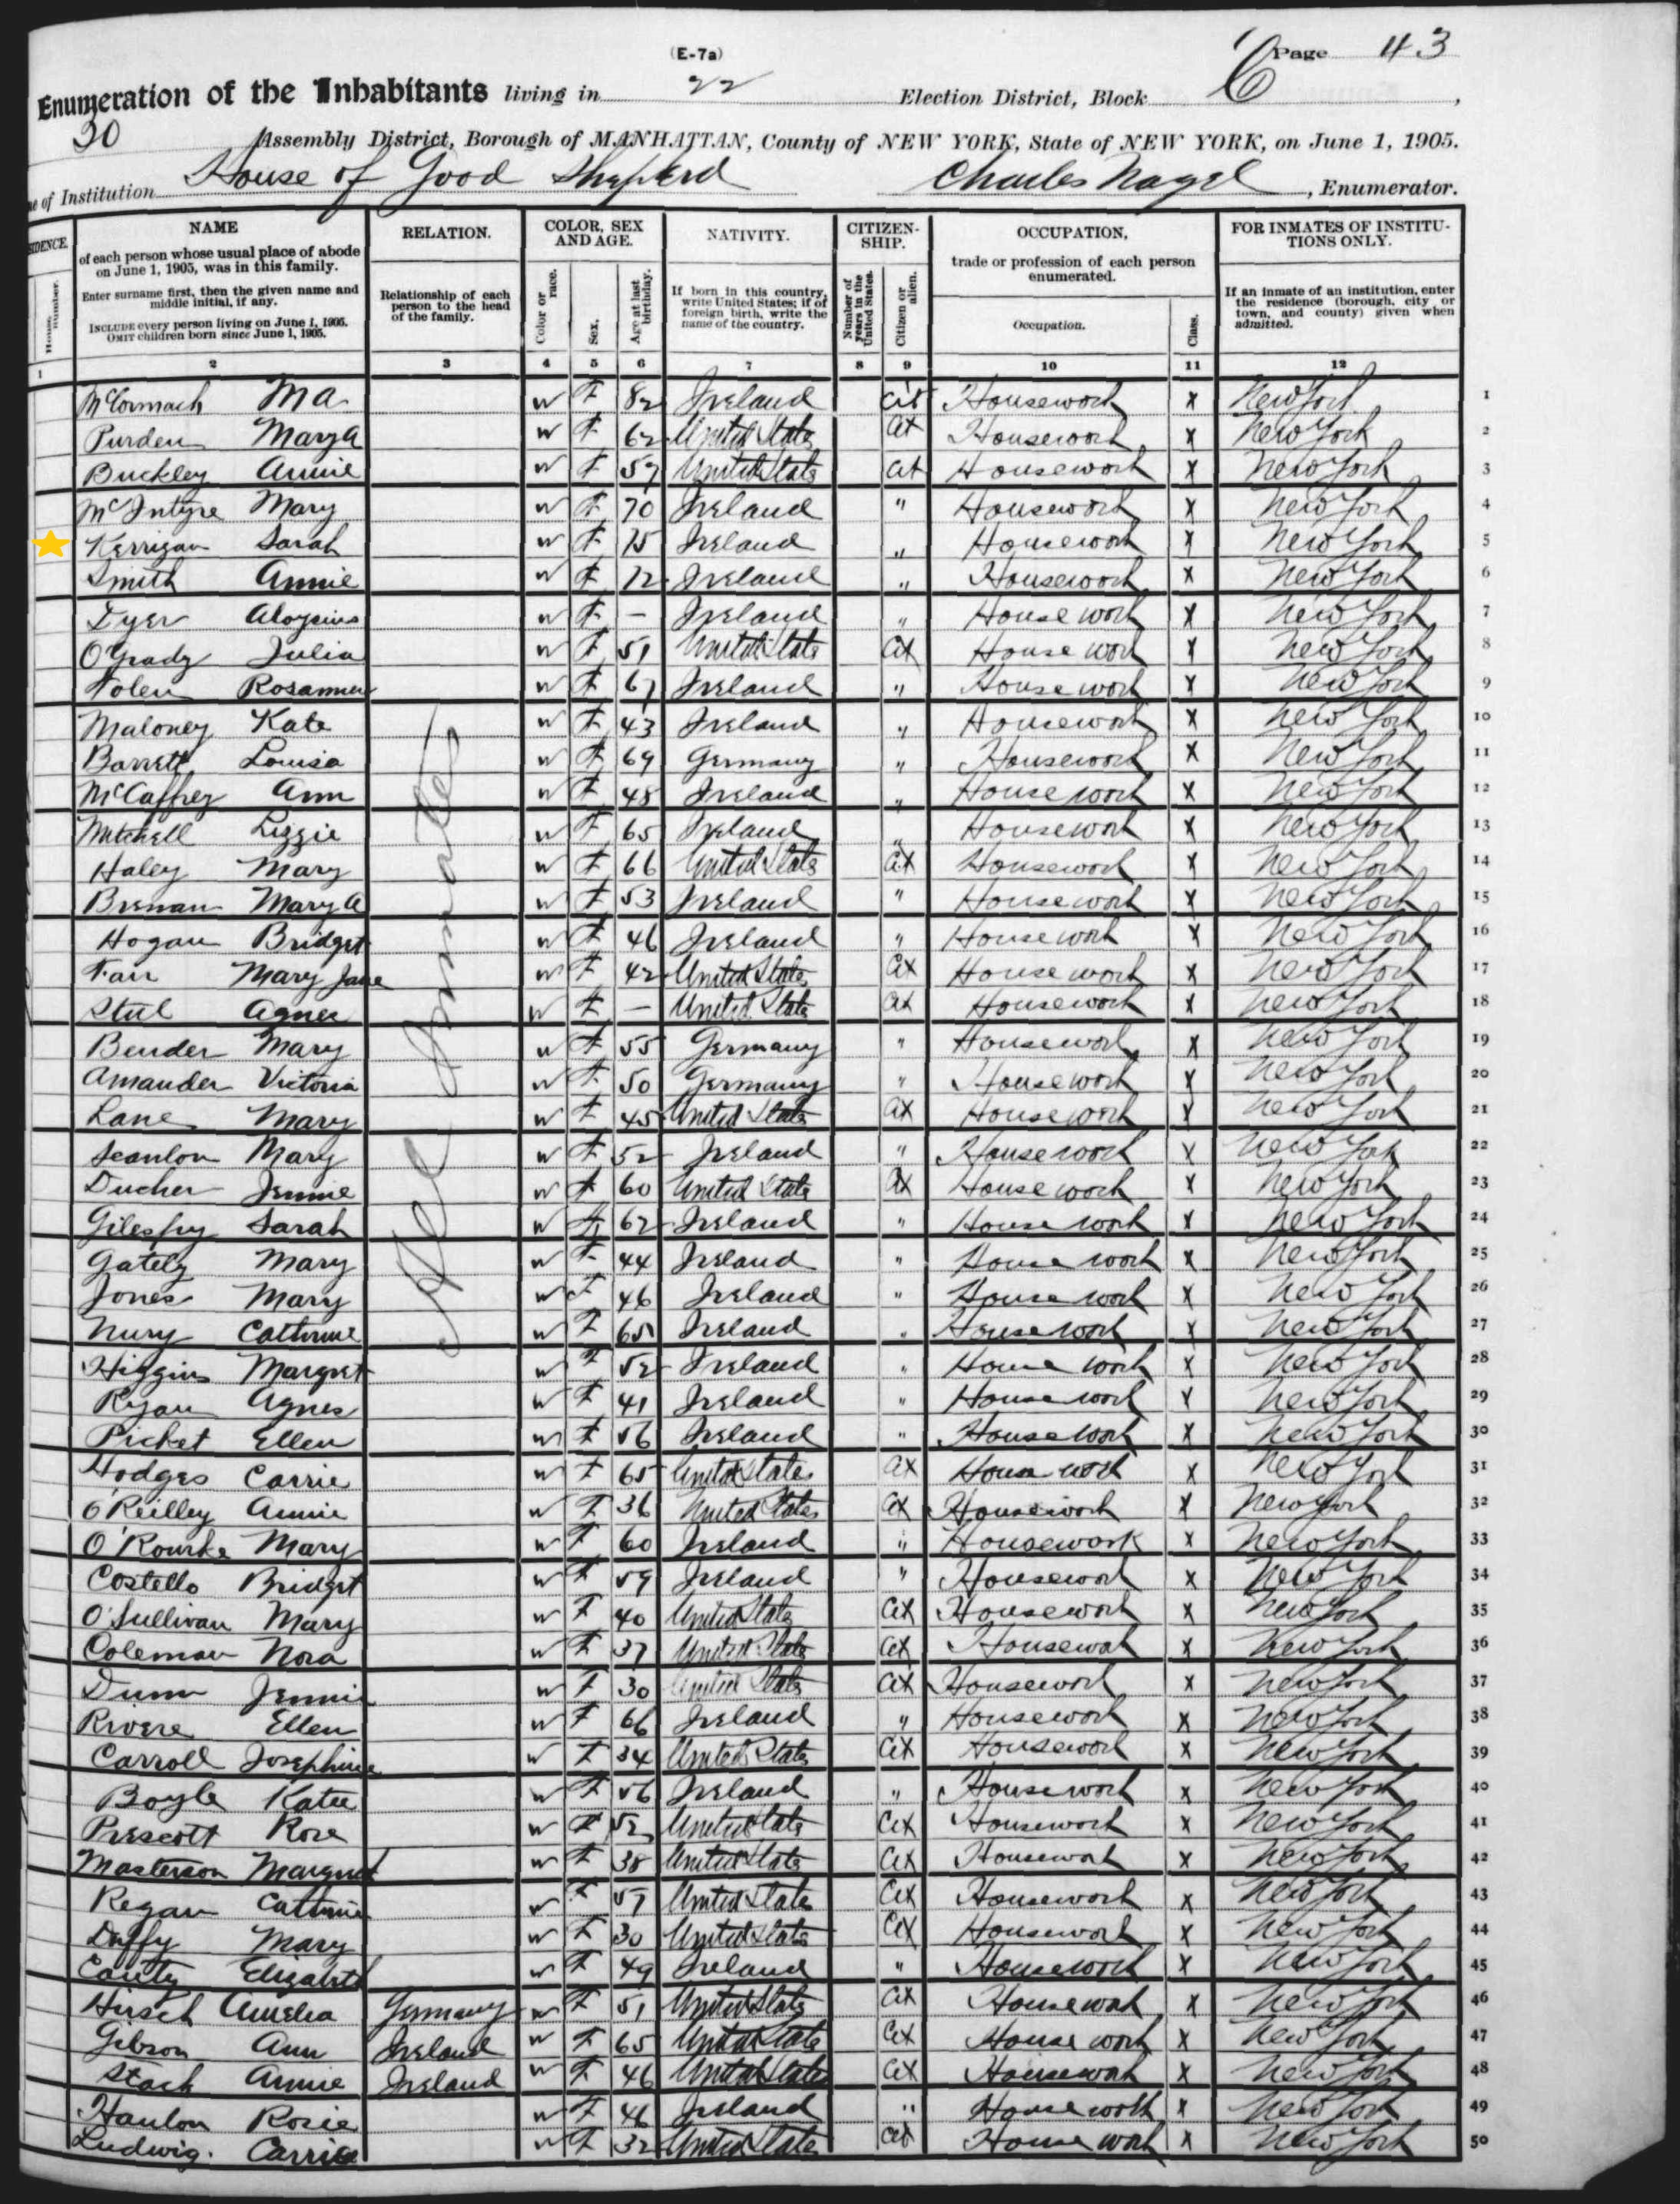 (E-7a)
Page 43
Enumeration of the Inhabitants living in 22 Election District, Block 6,
30 Assembly District, Borough of MANHATTAN, County of NEW YORK, State of NEW YORK, on June 1, 1905.
of Institution House of Good Sheperd Charles Nagel, Enumerator.
NAME
of each person whose usual place of abode on June 1, 1905, was in this family.
Enter surname first, then the given name and middle initial, if any.
INCLUDE every person living on June 1, 1905.
OMIT children born since June 1, 1905.
RELATION.
Relationship of each person to the head of the family.
COLOR, SEX AND AGE.
Color or race.
Sex.
Age at last birthday.
NATIVITY.
If born in this country, write United States; if of foreign birth, write the name of the country.
CITIZEN-SHIP.
Number of years in the United States.
Citizen or alien.
OCCUPATION,
trade or profession of each person enumerated.
Occupation.
Class.
FOR INMATES OF INSTITU-TIONS ONLY.
If an inmate of an institution, enter the residence (borough, city or town, and county) given when admitted.
House number.
1 2 3 4 5 6 7 8 9 10 11 12
All Inmates
McCormack Ma W F 82 Ireland Cit Housework X New York 1
Purden Mary A W F 62 United States Cit Housework X New York 2
Buckley Annie W F 57 United States Cit Housework X New York 3
McIntyre Mary W F 70 Ireland " Housework X New York 4
Kerrigan Sarah W F 75 Ireland " Housework X New York 5
Smith Annie W F 72 Ireland " Housework X New York 6
Dyer Aloysius W F — Ireland " House work X New York 7
O'Grady Julia W F 51 United State Cit House work X New York 8
Rosanna W F 67 Ireland " House work X New York 9
Maloney Kate W F 43 Ireland " Housework X New York 10
Barrett Louisa W F 69 Germany " Housework X New York 11
McCaffrey Ann W F 48 Ireland " House work X New York 12
Mitchell Lizzie W F 65 Ireland " Housework X New York 13
Haley Mary W F 66 United States Cit Housework X New York 14
Brenan Mary A W F 53 Ireland " Housework X New York 15
Hogan Bridget W F 46 Ireland " House work X New York 16
Mary Jane W F 42 United States Cit House work X New York 17
Agnes W F — United State Cit Housework X New York 18
Bender Mary W F 55 Germany " Housework X New York 19
Amander Victoria W F 50 Germany " House work X New York 20
Lane Mary W F 45 United State Cit House work X New York 21
Scanlon Mary W F 52 Ireland " House work X New York 22
Ducher Jennie W F 60 United State Cit House work X New York 23
Gilespy Sarah W F 62 Ireland " House work X New York 24
Gately Mary W F 44 Ireland " House work X New York 25
Jones Mary W F 46 Ireland " House work X New York 26
Catherine W F 65 Ireland " House work X New York 27
Higgins Margret W F 52 Ireland " House work X New York 28
Ryan Agnes W F 41 Ireland " House work X New York 29
Picket Ellen W F 56 Ireland " House work X New York 30
Hodges Carrie W F 65 United States Cit House work X New York 31
O'Reilley Annie W F 36 United States Cit Housework X New York 32
O'Rourke Mary W F 60 Ireland " Housework X New York 33
Costello Bridget W F 59 Ireland " Housework X New York 34
O'Sullivan Mary W F 40 United State Cit Housework X New York 35
Coleman Nora W F 37 United State Cit Housework X New York 36
Dunn Jennie W F 30 United States Cit Housework X New York 37
Rivere Ellen W F 66 Ireland " Housework X New York 38
Carroll Josephine W F 34 United States Cit Housework X New York 39
Boyle Katie W F 56 Ireland " Housework X New York 40
Prescott Rose W F 52 United State Cit Housework X New York 41
Masterson Margret W F 38 United State Cit Housework X New York 42
Regan Catherine W F 57 United State Cit Housework X New York 43
Duffy Mary W F 30 United State Cit Housework X New York 44
Elizabeth W F 49 Ireland " Housework X New York 45
Hirsch Amelia Germany W F 51 United State Cit Housework X New York 46
Gibson Ann Ireland W F 65 United State Cit House work X New York 47
Stack Annie Ireland W F 46 United State Cit Housework X New York 48
Hanlon Rosie W F 46 Ireland " House work X New York 49
Ludwig. Carrie W F 32 United State Cit House work X New York 50